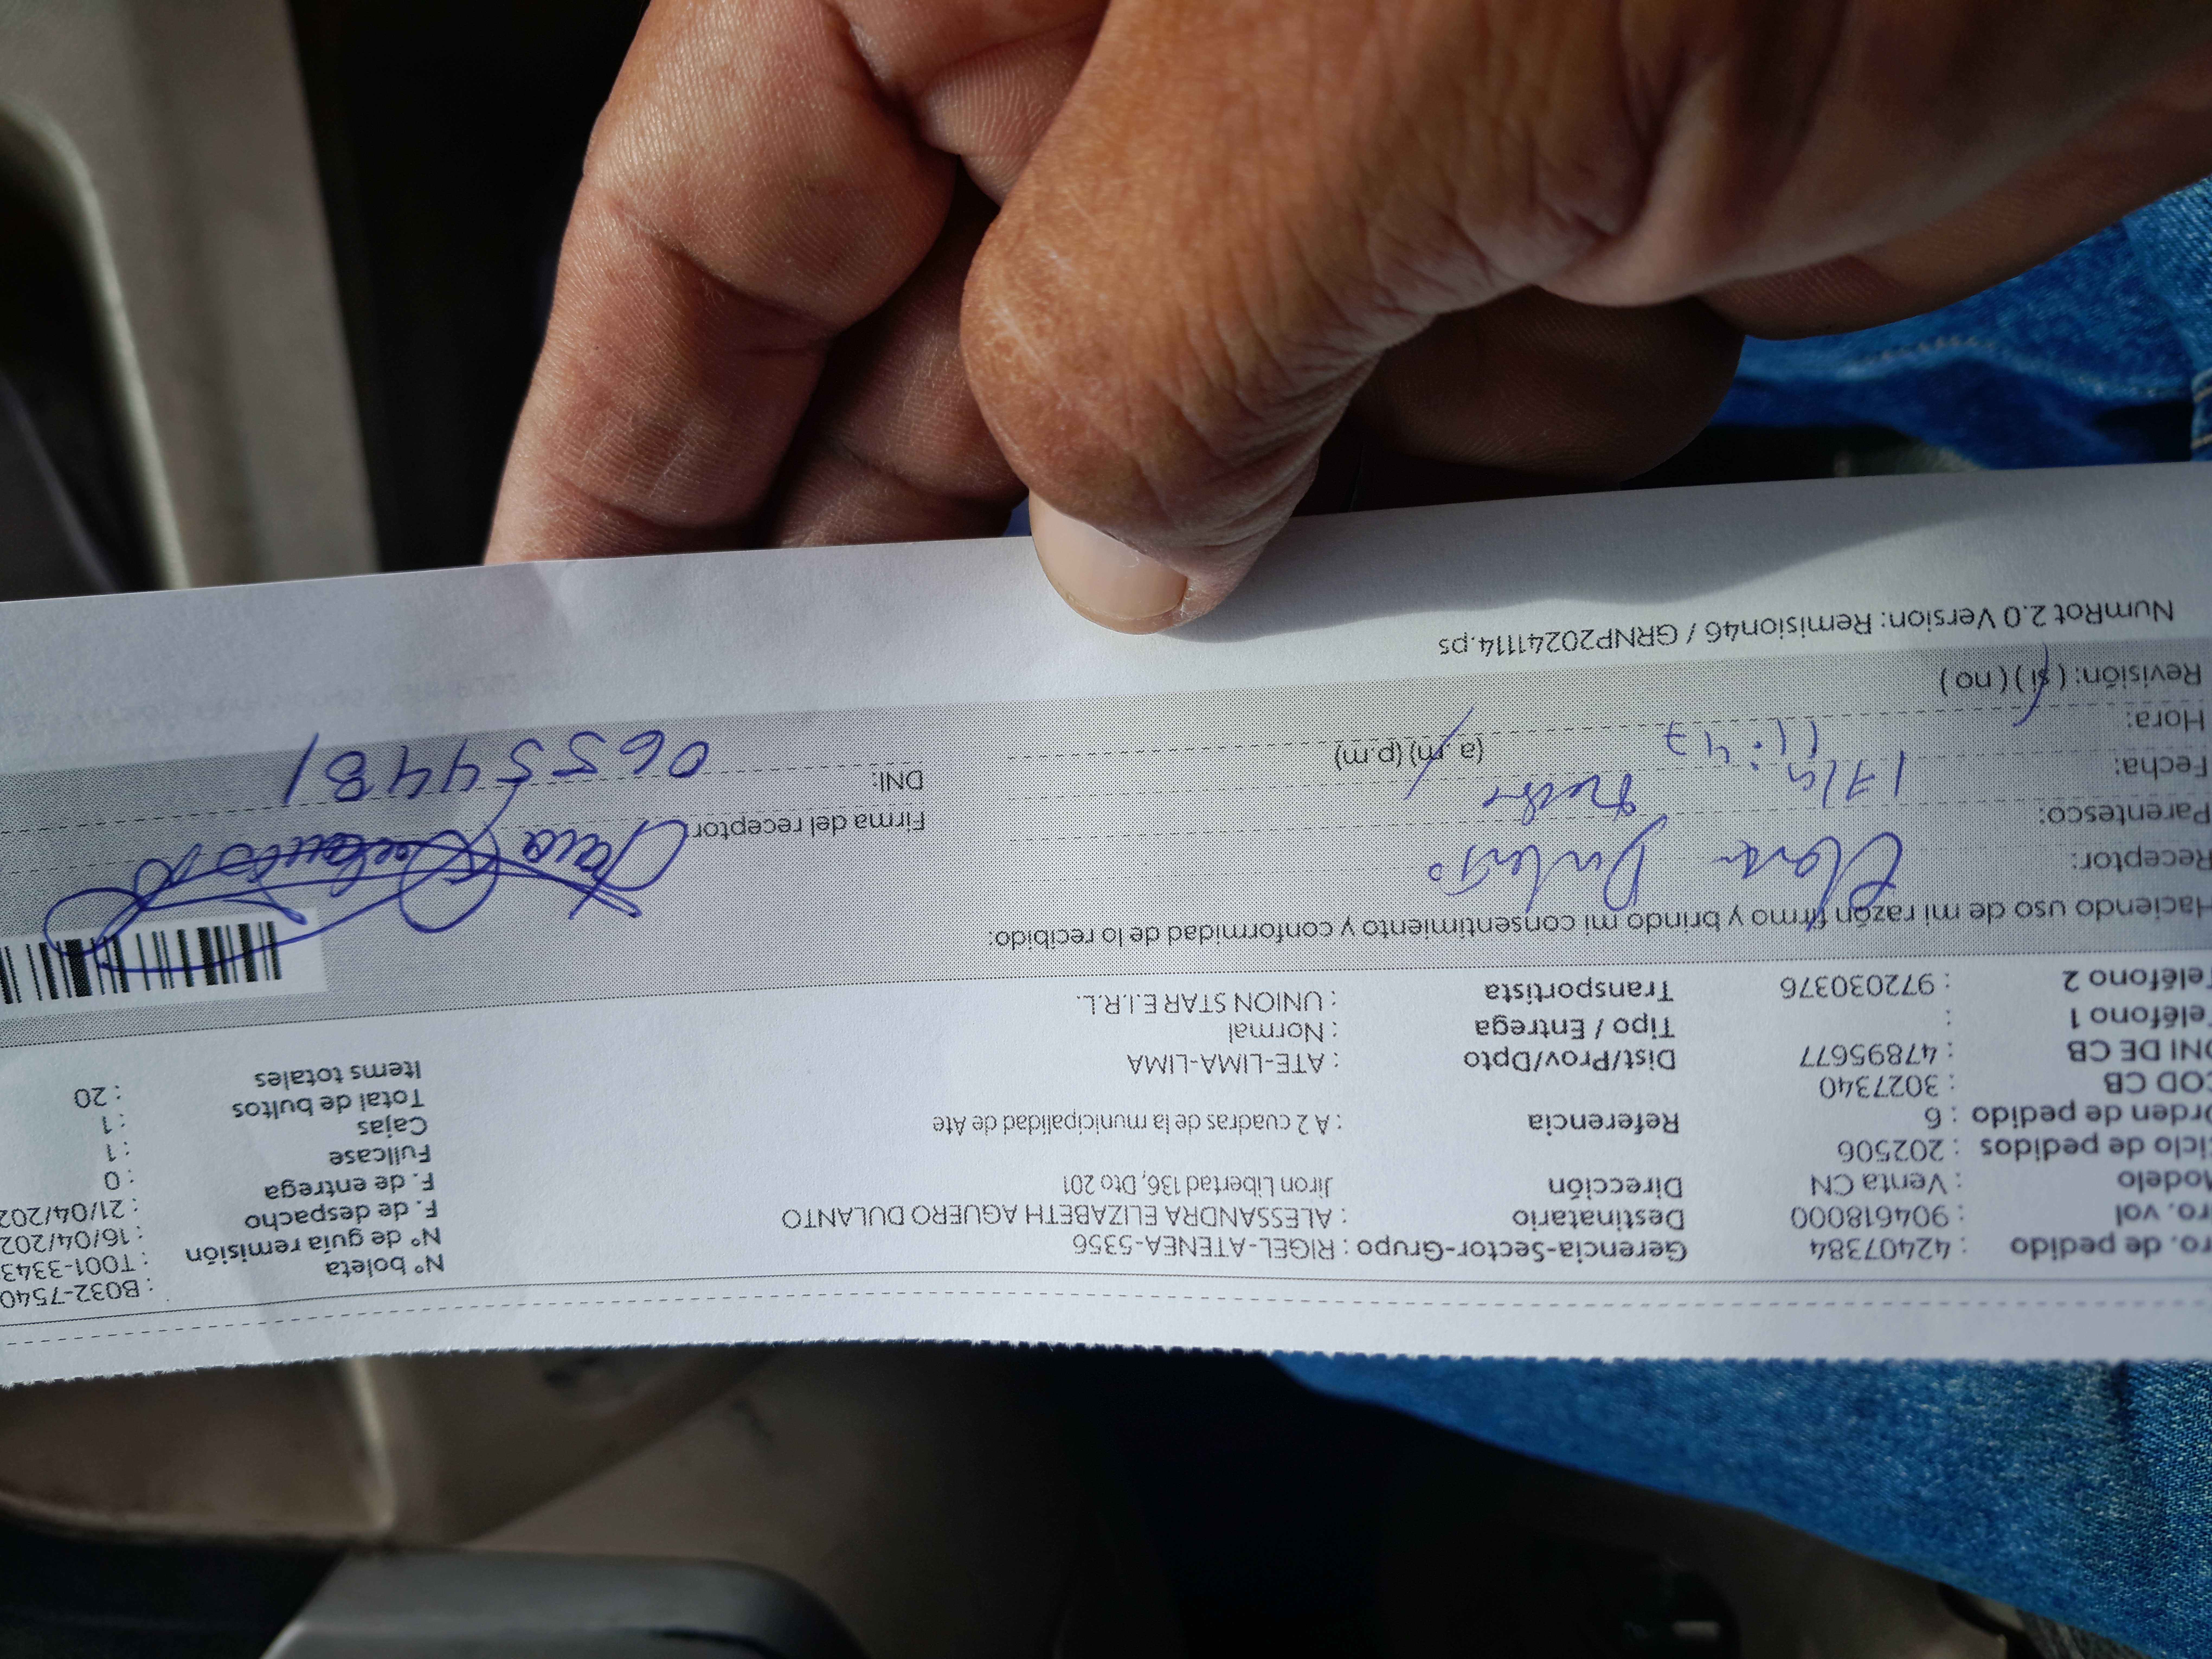 ro. de pedido : 42407384 Gerencia-Sector-Grupo : RIGEL-ATENEA-5356 N° boleta : B032-7540
ro. vol : 904618000 Destinatario : ALESSANDRA ELIZABETH AGUERO DULANTO N° de guía remisión : T001-3343
Modelo : Venta CN Dirección Jiron Libertad 136, Dto 201 F. de despacho : 16/04/202
Ciclo de pedidos : 202506 F. de entrega : 21/04/202
Orden de pedido : 6 Referencia : A 2 cuadras de la municipalidad de Ate Fullcase : 0
COD CB : 3027340 Cajas : 1
DNI DE CB : 47895677 Dist/Prov/Dpto : ATE-LIMA-LIMA Total de bultos : 1
Teléfono 1 : Tipo / Entrega : Normal Items totales : 20
Teléfono 2 : 972030376 Transportista : UNION STAR E.I.R.L.
Haciendo uso de mi razón firmo y brindo mi consentimiento y conformidad de lo recibido:
Receptor: Dulanto
Parentesco: Firma del receptor:
Fecha: 17/4 DNI: 06554481
Hora: 11:47 (a.m) (p.m)
Revisión: (si) (no)
NumRot 2.0 Version: Remision46 / GRNP20241114.ps